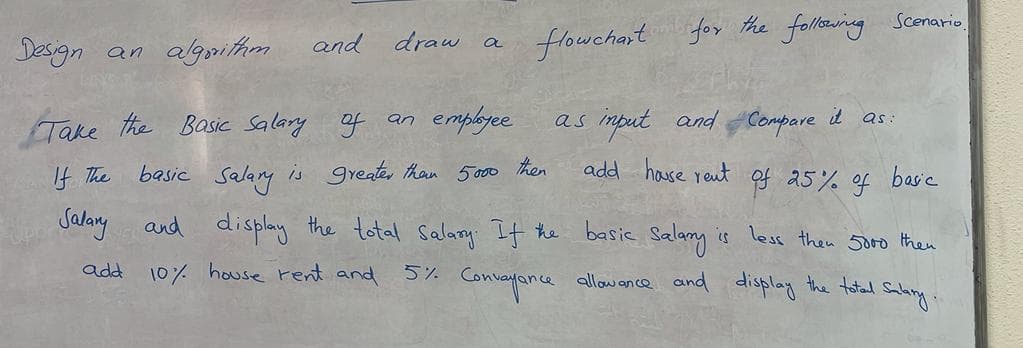 Design an algorithm and draw a flowchart for the following Scenario.
Take the Basic Salary of an employee as input and Compare it as:
If The basic salary is greater than 5000 then add house rent of 25% of basic
Salary and display the total Salary. If the basic Salary is less then 5000 then
add 10% house rent and 5% Convayance allowance and display the total Salary.